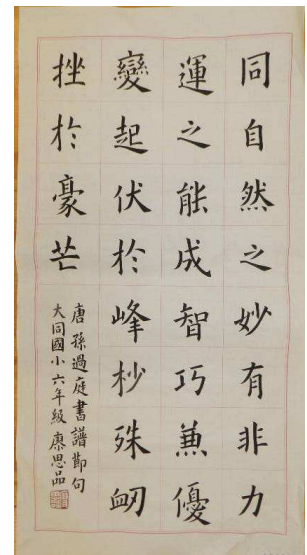 同自然之妙有非力
運之能成智巧兼優
變起伏於峰杪殊衂
挫於豪芒
唐孫過庭書譜節句
大同國小六年級康思品